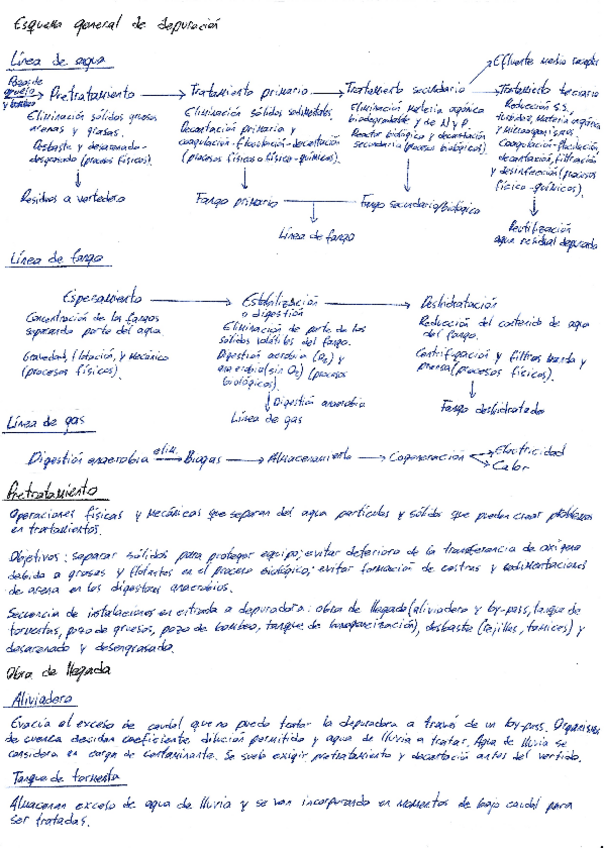 Esquema general de depuración
Línea de agua
Efluente medio receptor
Pozo de
gruesos
y bombeo
Pretratamiento
Tratamiento primario
Tratamiento secundario
Tratamiento terciario
Eliminación sólidos gruesos
arenas y grasas.
Desbaste y desarenado-
desengrasado (procesos físicos).
Residuos a vertedero
Eliminación sólidos sedimentables.
Decantación primaria y
coagulación-floculación-decantación
(procesos físicos o físico-químicos).
Fango primario
Eliminación materia orgánica
biodegradable y de N y P.
Reactor biológico y decantación
secundaria (procesos biológicos).
Fango secundario/biológico
Reducción S.S.,
turbidez, materia orgánica
y microorganismos.
Coagulación-floculación,
decantación, filtración
y desinfección (procesos
físico-químicos).
Reutilización
agua residual depurada
Línea de fango
Línea de fango
Espesamiento
Estabilización
o digestión
Deshidratación
Concentración de los fangos
separando parte del agua
Gravedad, flotación, y mecánico
(procesos físicos).
Eliminación de parte de los
sólidos volátiles del fango.
Digestión aerobia (O₂) y
anaerobia (sin O₂) (procesos
biológicos).
Digestión anaerobia
Línea de gas
Reducción del contenido de agua
del fango.
Centrifugación y filtros banda y
prensa (procesos físicos).
Fango deshidratado
Línea de gas
Digestión anaerobia
Biogas
Almacenamiento
Cogeneración
Electricidad
Calor
Pretratamiento
Operaciones físicas y mecánicas que separan del agua partículas y sólidos que pueden crear problemas
en tratamientos.
Objetivos: separar sólidos para proteger equipo; evitar deterioro de la transferencia de oxígeno
debido a grasas y flotantes en el proceso biológico; evitar formación de costras y sedimentaciones
de arena en los digestores anaerobios.
Secuencia de instalaciones en entrada a depuradora: obra de llegada (aliviadero y by-pass, tanque de
tormentas, pozo de gruesos, pozo de bombeo, tanque de homogeneización), desbaste (rejillas, tamices) y
desarenado y desengrasado.
Obra de llegada
Aliviadero
Evacúa el exceso de caudal que no puede tratar la depuradora a través de un by-pass. Organismos
de cuenca decidan coeficiente dilución permitido y agua de lluvia a tratar. Agua de lluvia se
considera en carga de contaminante. Se suele exigir pretratamiento y decantación antes del vertido.
Tanque de tormenta
Almacenan exceso de agua de lluvia y se van incorporando en momentos de bajo caudal para
ser tratadas.